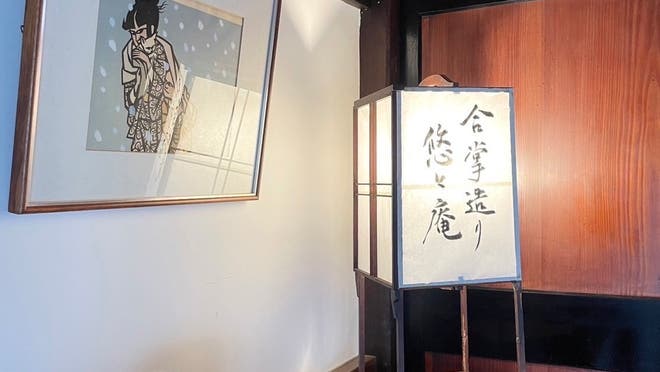 合掌造り
悠々庵